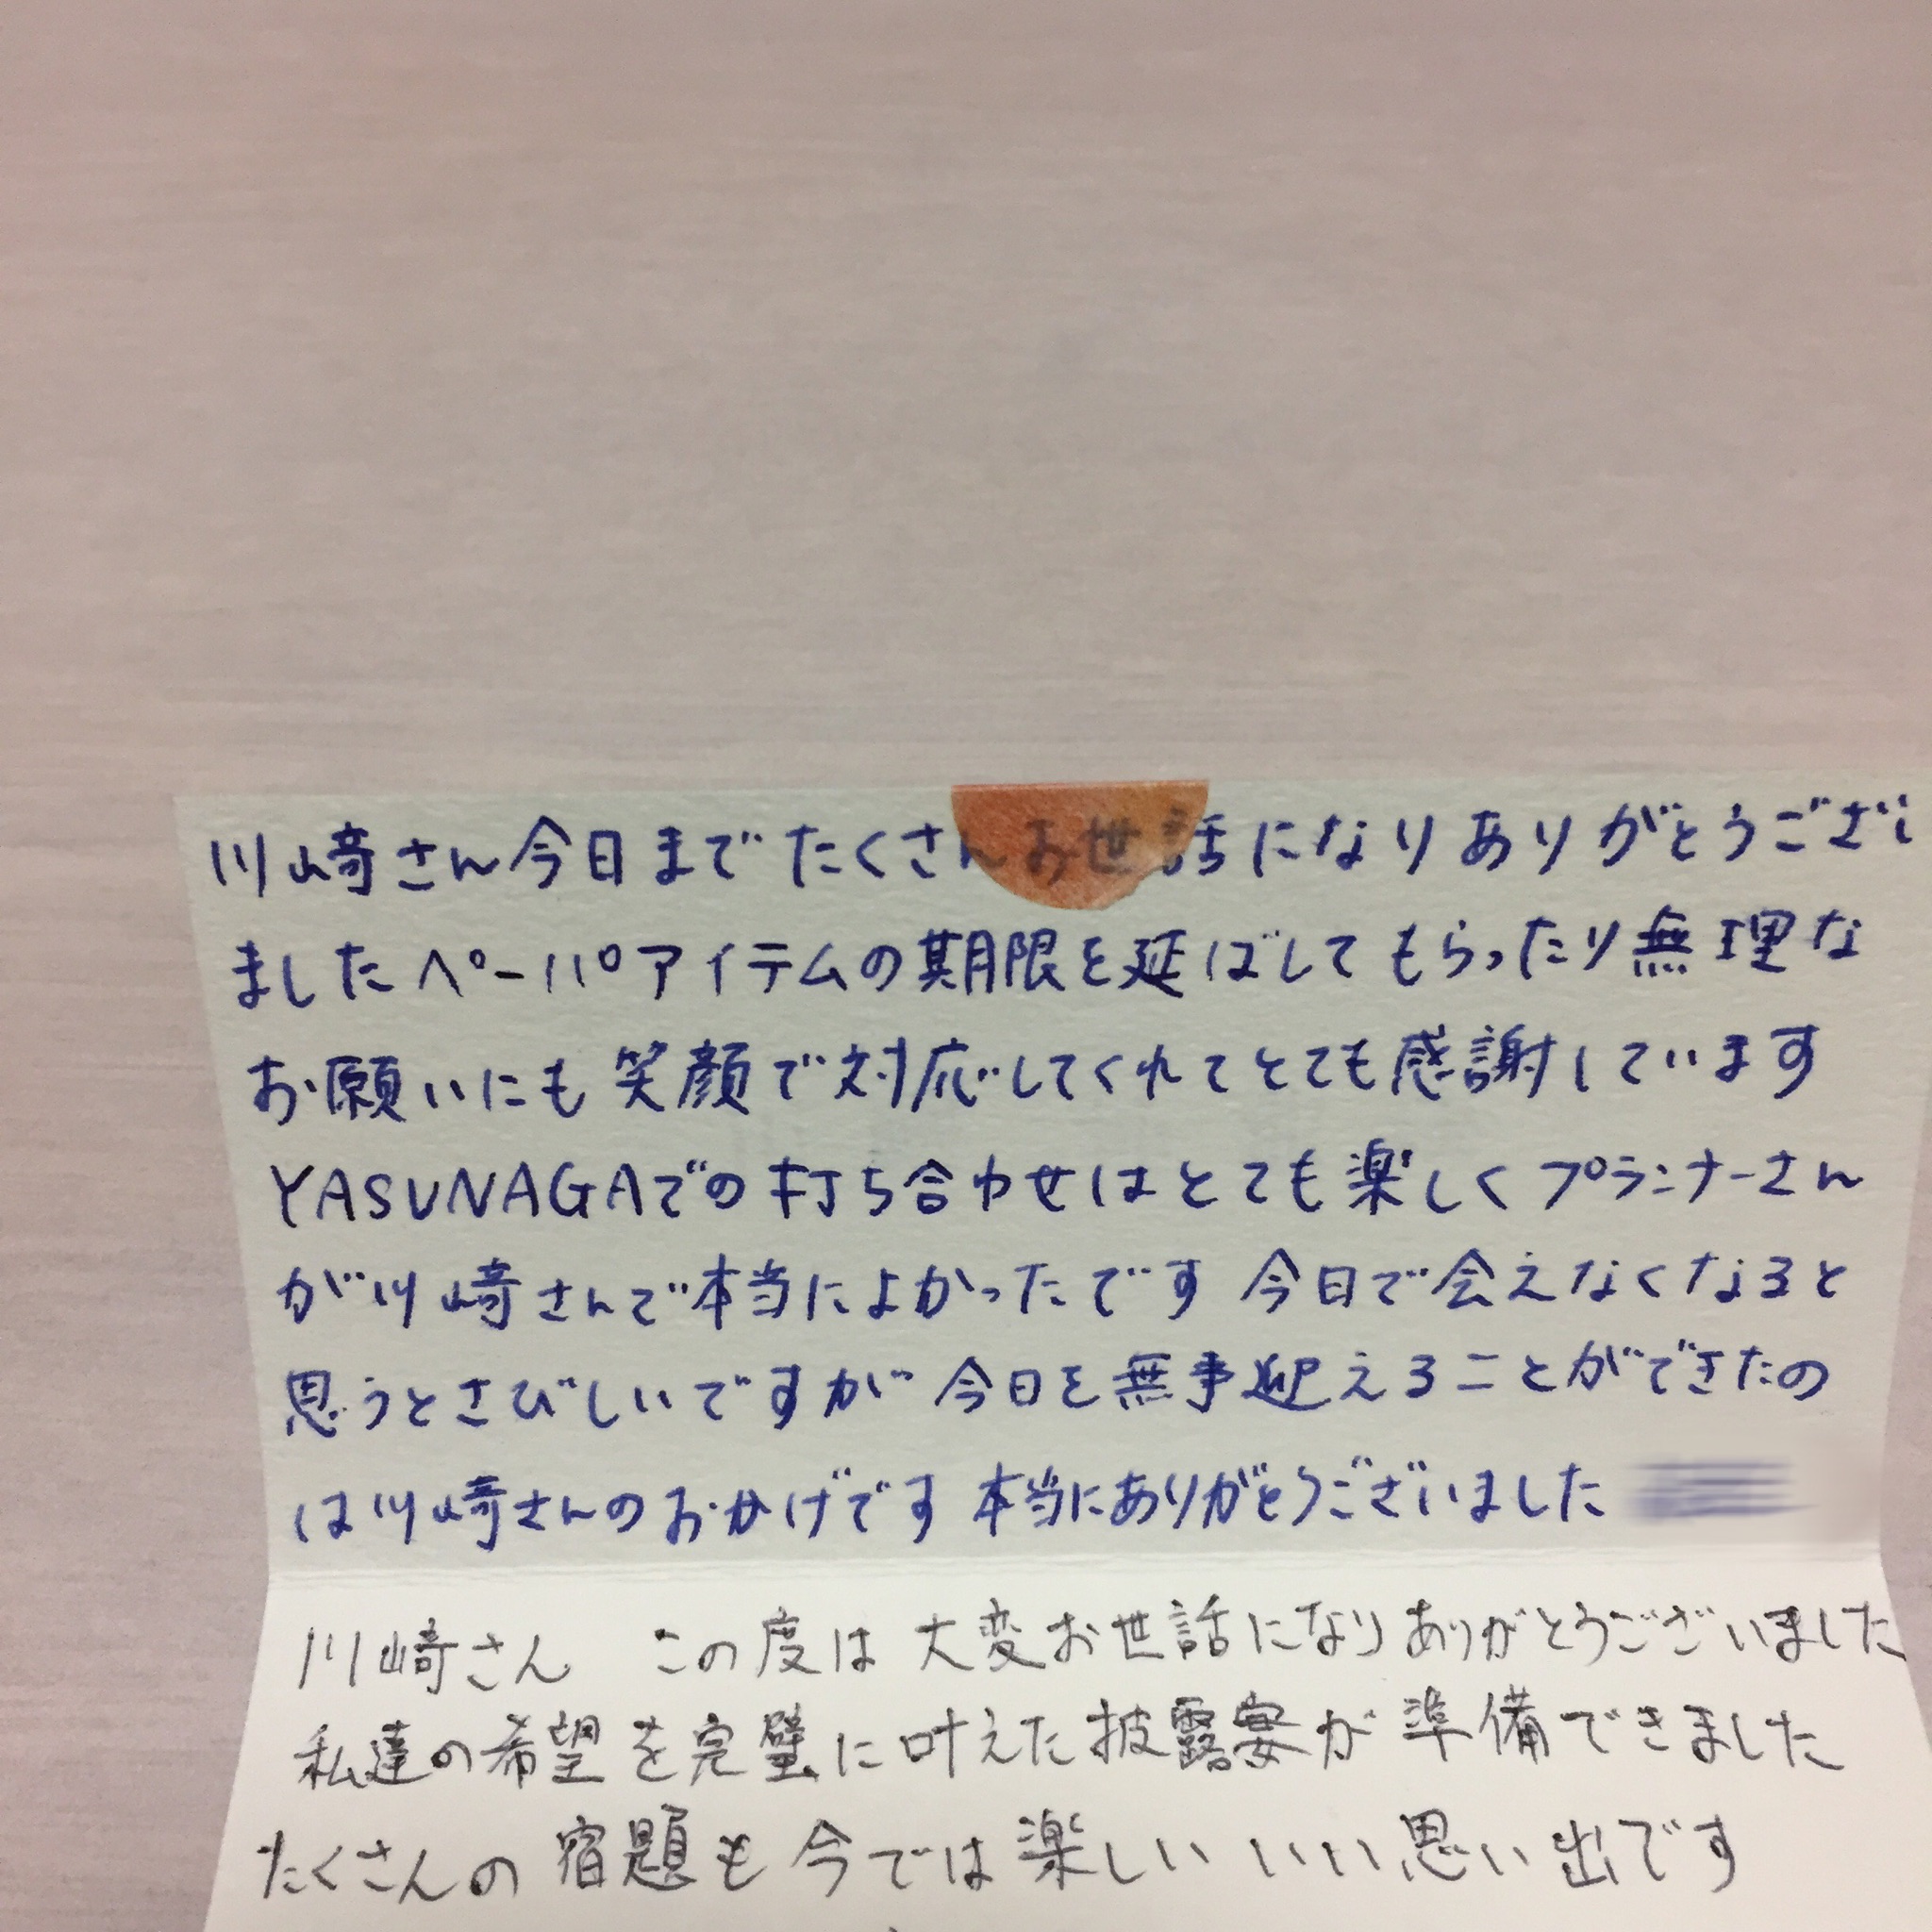 川﨑さん今日までたくさんお世話になりありがとうござい
ましたペーパアイテムの期限を延ばしてもらったり無理な
お願いにも笑顔で対応してくれてとても感謝しています
YASUNAGAでの打ち合わせはとても楽しくプランナーさん
が川﨑さんで本当によかったです 今日で会えなくなると
思うとさびしいですが 今日を無事迎えることができたの
は川﨑さんのおかげです 本当にありがとうございました
川﨑さん この度は大変お世話になりありがとうございました
私達の希望を完璧に叶えた披露宴が準備できました
たくさんの宿題も今では楽しいいい思い出です